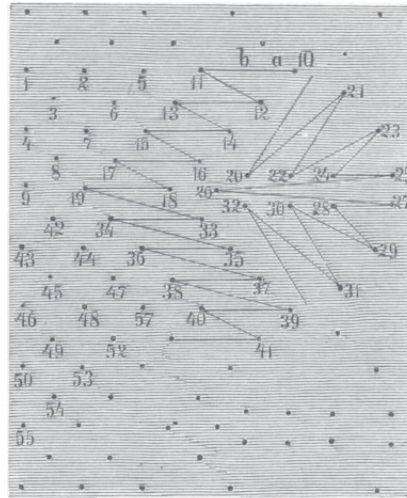 b a 10
1 2 5 11
21
3 6 13 12
4 7 15 14 23
8 17 16 20 22 24 25
9 19 18 26
32 30 28 27
42 34 33
43 44 36 35 29
45 47 38 37 31
46 48 57 40 39
49 52 41
50 53
54
55